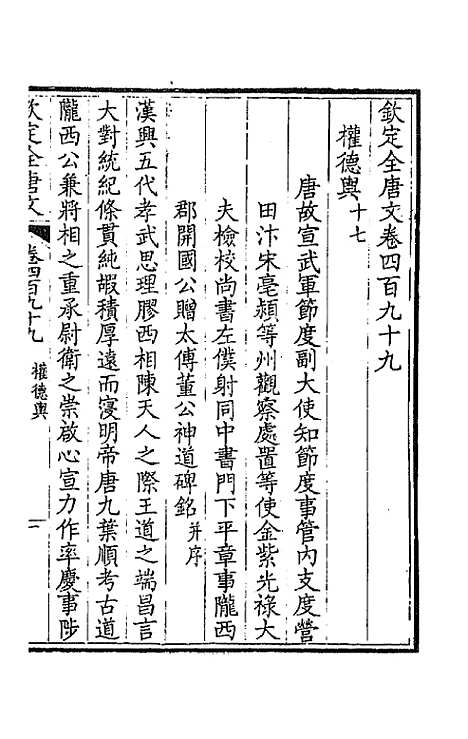 欽定全唐文卷四百九十九
權德輿十七
唐故宣武軍節度副大使知節度事管內支度營
田汴宋亳潁等州觀察處置等使金紫光祿大
夫檢校尚書左僕射同中書門下平章事隴西
郡開國公贈太傅董公神道碑銘并序
漢興五代孝武思理膠西相陳天人之際王道之端昌言
大對統紀條貫純嘏積厚遠而寖明帝唐九葉順考古道
隴西公兼將相之重承尉衛之崇啟心宣力作率慶事陟
欽定全唐文
卷四百九十九
權德輿
一